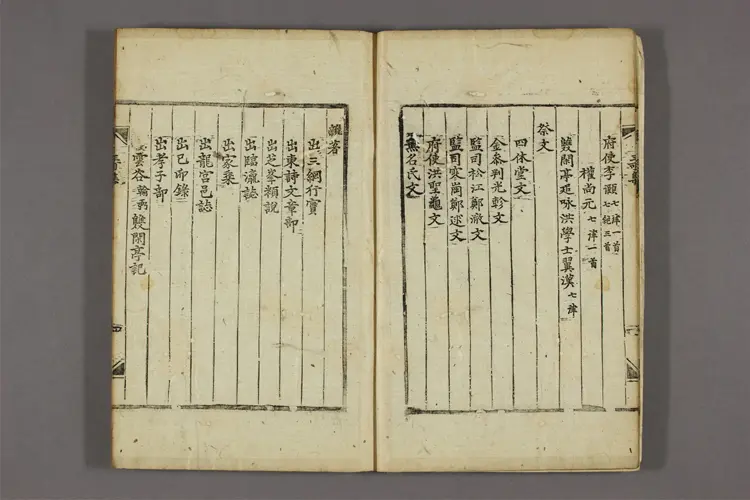 府使李灝七律一首七絶三首
權尚元七律一首
雙閑亭追咏洪學士翼漢七律
祭文
四休堂文
金泰判光軫文
監司松江鄭澈文
監司寒崗鄭逑文
府使洪聖龜文
無名氏文
雜著
出三綱行實
出東詩文章部
出芝峯類說
出臨瀛誌
出龍宮邑誌
出家乘
出己卯錄
出孝子部
雲谷雙閑亭記